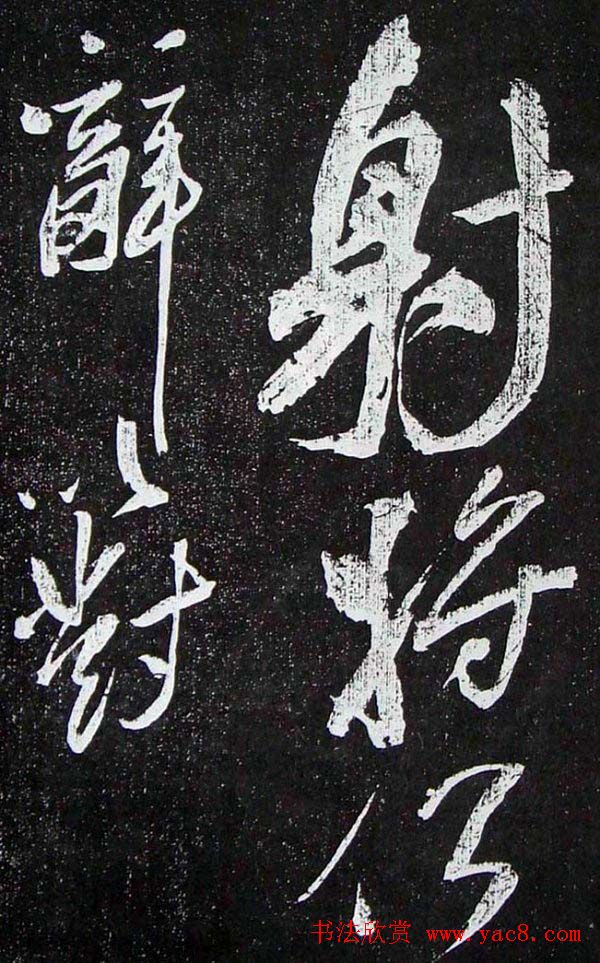 射将何
辭以對
书法欣赏 www.yac8.com